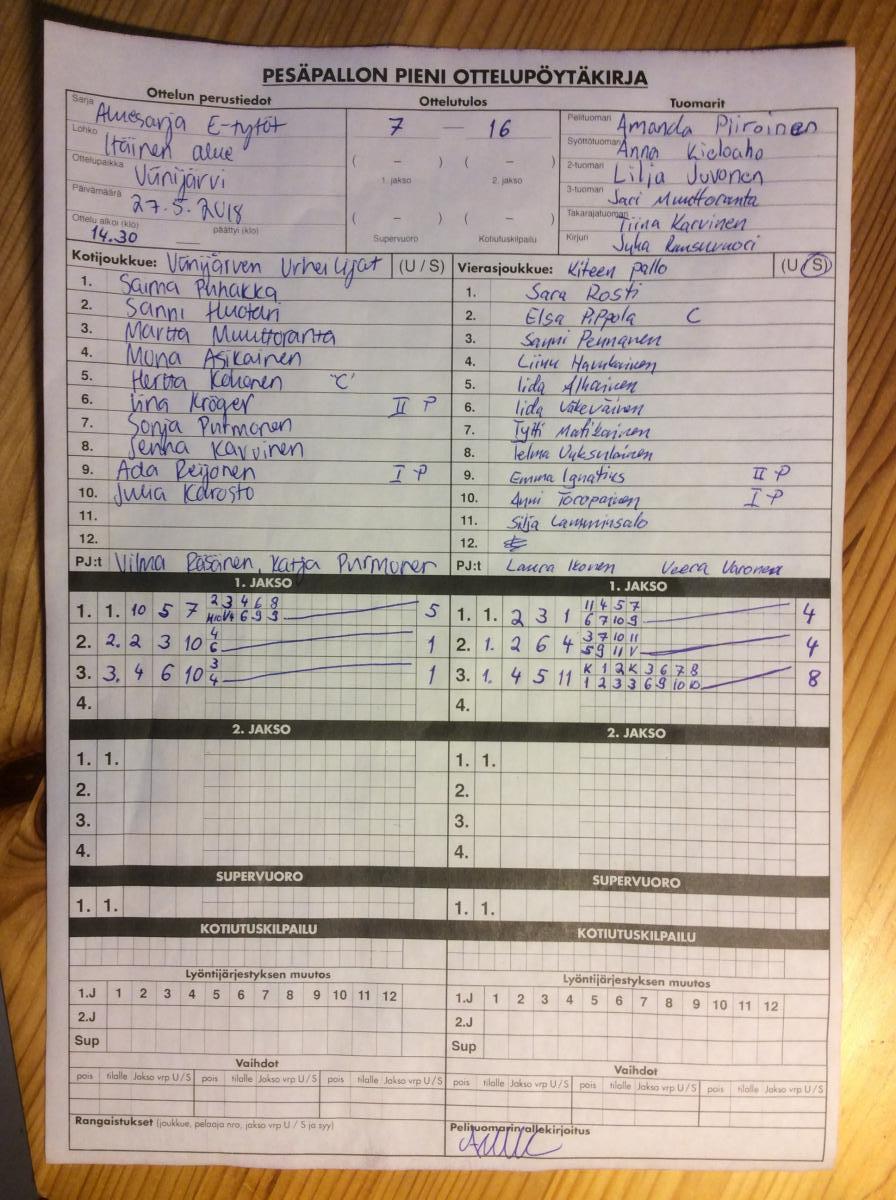 PESÄPALLON PIENI OTTELUPÖYTÄKIRJA
Ottelun perustiedot
Sarja Aluesarja E-tytöt
Lohko Itäinen alue
Ottelupaikka Viinijärvi
Päivämäärä 27.5.2018
Ottelu alkoi (klo) 14.30 päättyi (klo)
Ottelutulos
7 — 16
( – ) ( – )
1. jakso 2. jakso
( – ) ( – )
Supervuoro Kotiutuskilpailu
Tuomarit
Pelituomari Amanda Piiroinen
Syöttötuomari Anna Kieloaho
2-tuomari Lilja Juvonen
3-tuomari Sari Muuttoranta
Takarajatuomari Tiina Karvinen
Kirjuri Juha
Kotijoukkue: Viinijärven Urheilijat (U / S)
1. Saima Puhakka
2. Sanni Huotari
3. Martta Muuttoranta
4. Mona Asikainen
5. Hertta Kokonen "C"
6. Iina Kröger II P
7. Sonja Purmonen
8. Jenna Karvinen
9. Ada Reijonen I P
10. Julia Karosto
11.
12.
PJ:t Vilma Räsänen, Katja Purmonen
Vierasjoukkue: Kiteen Pallo (U / S)
1. Sara Rosti
2. Elsa Pippola C
3. Sanni Pennanen
4. Linnu Haukkainen
5. Iida
6. Iida Väkeväinen
7. Tytti Matikainen
8. Telma
9. Emma Ignatius II P
10. Anni Toropainen I P
11. Silja Lamminsalo
12.
PJ:t Laura Ikonen Veera Varonen
1. JAKSO
1. 1. 10 5 7 2 3 4 6 8 5
6 9 9
2. 2. 2 3 10 4 1
6
3. 3. 4 6 10 3 1
4
4.
1. JAKSO
1. 1. 2 3 1 11 4 5 7 4
6 7 10 9
2. 1. 2 6 4 3 7 10 11 4
5 9 11 V
3. 1. 4 5 11 K 1 2 K 3 6 7 8 8
1 2 3 3 6 9 10 10
4.
2. JAKSO
1. 1.
2.
3.
4.
2. JAKSO
1. 1.
2.
3.
4.
SUPERVUORO
1. 1.
SUPERVUORO
1. 1.
KOTIUTUSKILPAILU
KOTIUTUSKILPAILU
Lyöntijärjestyksen muutos
1.J 1 2 3 4 5 6 7 8 9 10 11 12
2.J
Sup
Lyöntijärjestyksen muutos
1.J 1 2 3 4 5 6 7 8 9 10 11 12
2.J
Sup
Vaihdot
pois tilalle Jakso vrp U / S pois tilalle Jakso vrp U / S pois tilalle Jakso vrp U / S
Vaihdot
pois tilalle Jakso vrp U / S pois tilalle Jakso vrp U / S pois tilalle Jakso vrp U / S
Rangaistukset (joukkue, pelaaja nro, jakso vrp U / S ja syy)
Pelituomarin allekirjoitus